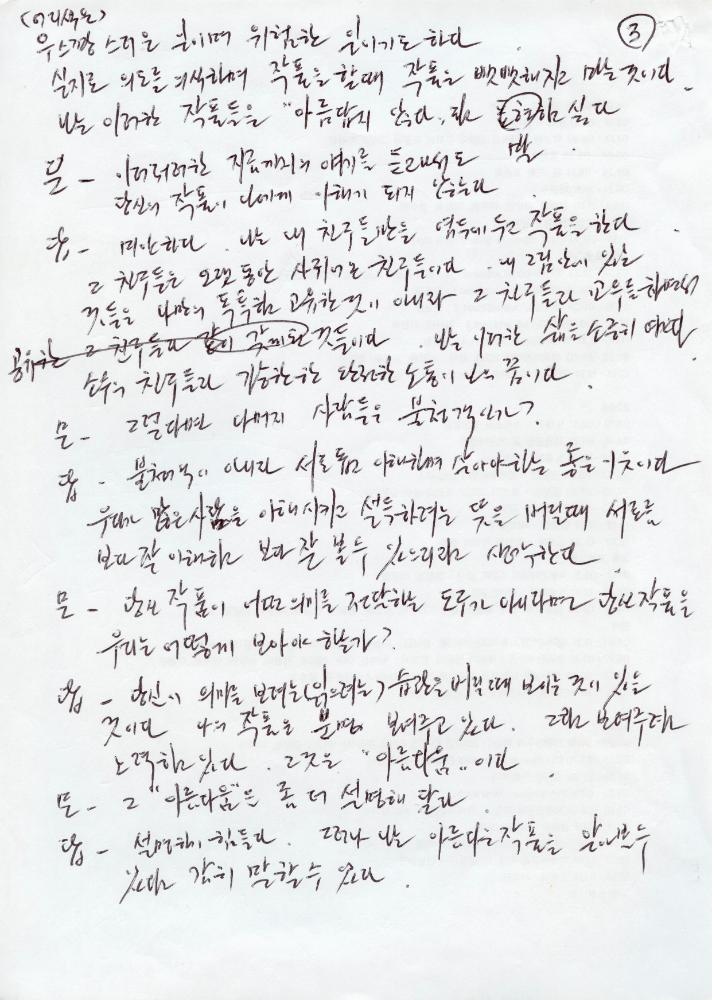 (어리석은)
③
우스꽝스러운 일이며 위험한 일이기도 하다
실지로 의도를 의식하며 작품을 할때 작품은 뻣뻣해지고 마는 것이다.
나는 이러한 작품들을 "아름답지 않다"라고 표현하고 싶다
말
문 - 이러한 지금까지의 얘기를 들고서도
당신의 작품이 나에게 이해가 되지 않는다
답 - 미안하다. 나는 내 친구들만을 염두에 두고 작품을 한다.
그 친구들은 오랫동안 사귀어온 친구들이다. 내 그림안에 있는
것들은 나만의 독특하고 고유한 것이 아니라 그 친구들과 교우를 하면서
공유한 그 친구들과 같이 갖게된 것들이다. 나는 이러한 삶을 소중히 여기며
소수의 친구들과 가능한한 완전한 소통이 나의 꿈이다.
문 - 그렇다면 나머지 사람들은 불청객인가?
답 - 불청객이 아니라 서로 돕고 이해하며 살아야하는 좋은 이웃이다
우리가 많은 사람을 이해시키고 설득하려는 뜻을 버릴때 서로를
보다 잘 이해하고 보다 잘 볼수 있으리라고 생각한다.
문 - 당신 작품이 어떤 의미를 전달하는 도구가 아니라면 당신 작품을
우리는 어떻게 보아야 할까?
답 - 당신이 의미를 보려는(읽으려는) 습관을 버릴때 보이는 것이 있을
것이다 나의 작품은 분명 보여주고 있다. 그리고 보여주려고
노력하고 있다. 그것은 "아름다움"이다
문 - 그 "아름다움"은 좀 더 설명해 달라
답 - 설명하기 힘들다. 그러나 나는 아름다운 작품을 알아볼수
있다고 감히 말할수 있다.